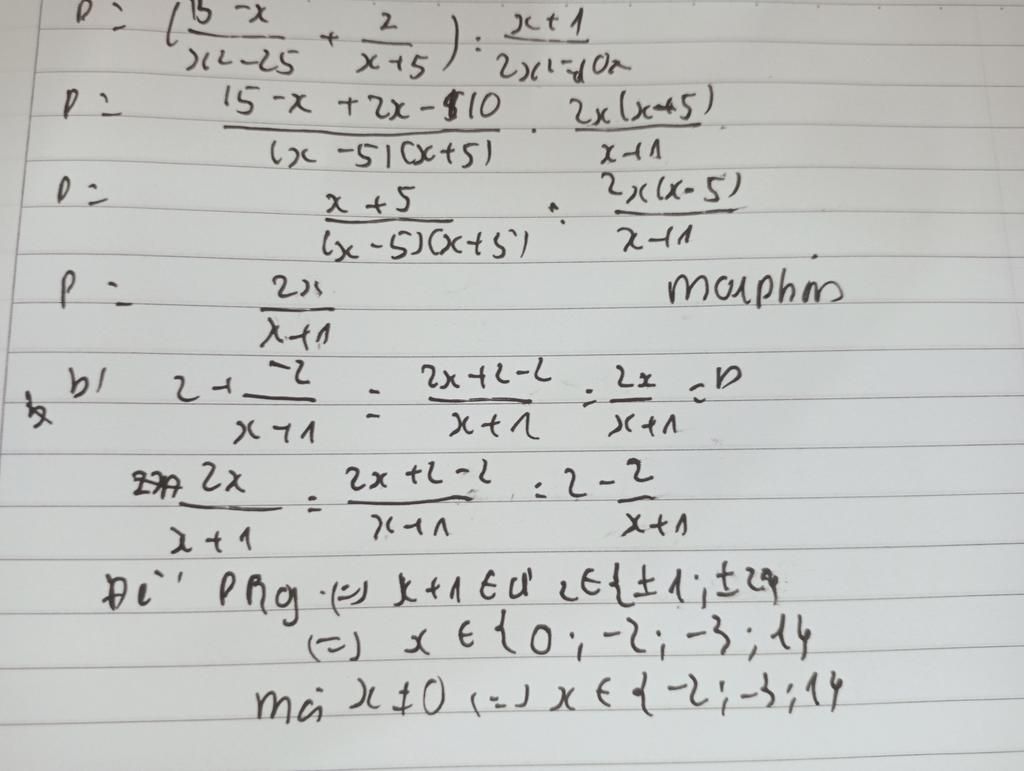 P = (15 - x / x² - 25 + 2 / x + 5) : x + 1 / 2x² - 10x
P = 15 - x + 2x - 10 / (x - 5)(x + 5) . 2x(x + 5) / x + 1
P = x + 5 / (x - 5)(x + 5) . 2x(x - 5) / x + 1
P = 2x / x + 1
b) 2 + -2 / x + 1 = 2x + 2 - 2 / x + 1 = 2x / x + 1 = P
2x / x + 1 = 2x + 2 - 2 / x + 1 = 2 - 2 / x + 1
Để P Rg (=) x + 1 ∈ Ư 2 ∈ {±1; ±2}
(=) x ∈ {0; -2; -3; 1}
mà x ≠ 0 (=) x ∈ {-2; -3; 1}